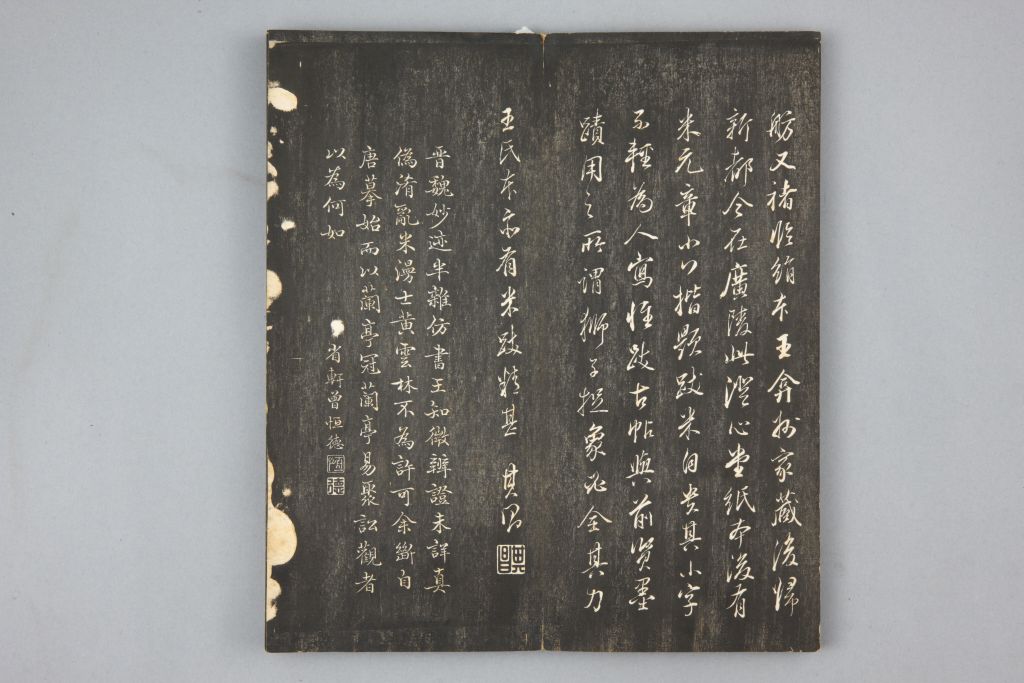 舫又褚临絹本王弇州家藏後歸
新都今在廣陵此澄心堂紙本後有
米元章小行楷題跋米自貴其小字
不輕為人寫惟跋古帖與前賢墨
蹟用之所謂獅子捉象必全其力
王氏本亦有米跋精甚 其昌
晋魏妙迹半雜仿書王知微辨證未詳真
偽淆亂米漫士黃雲林不為許可余斷自
唐摹始而以蘭亭冠蘭亭易聚訟觀者
以為何如
省軒曾恒德